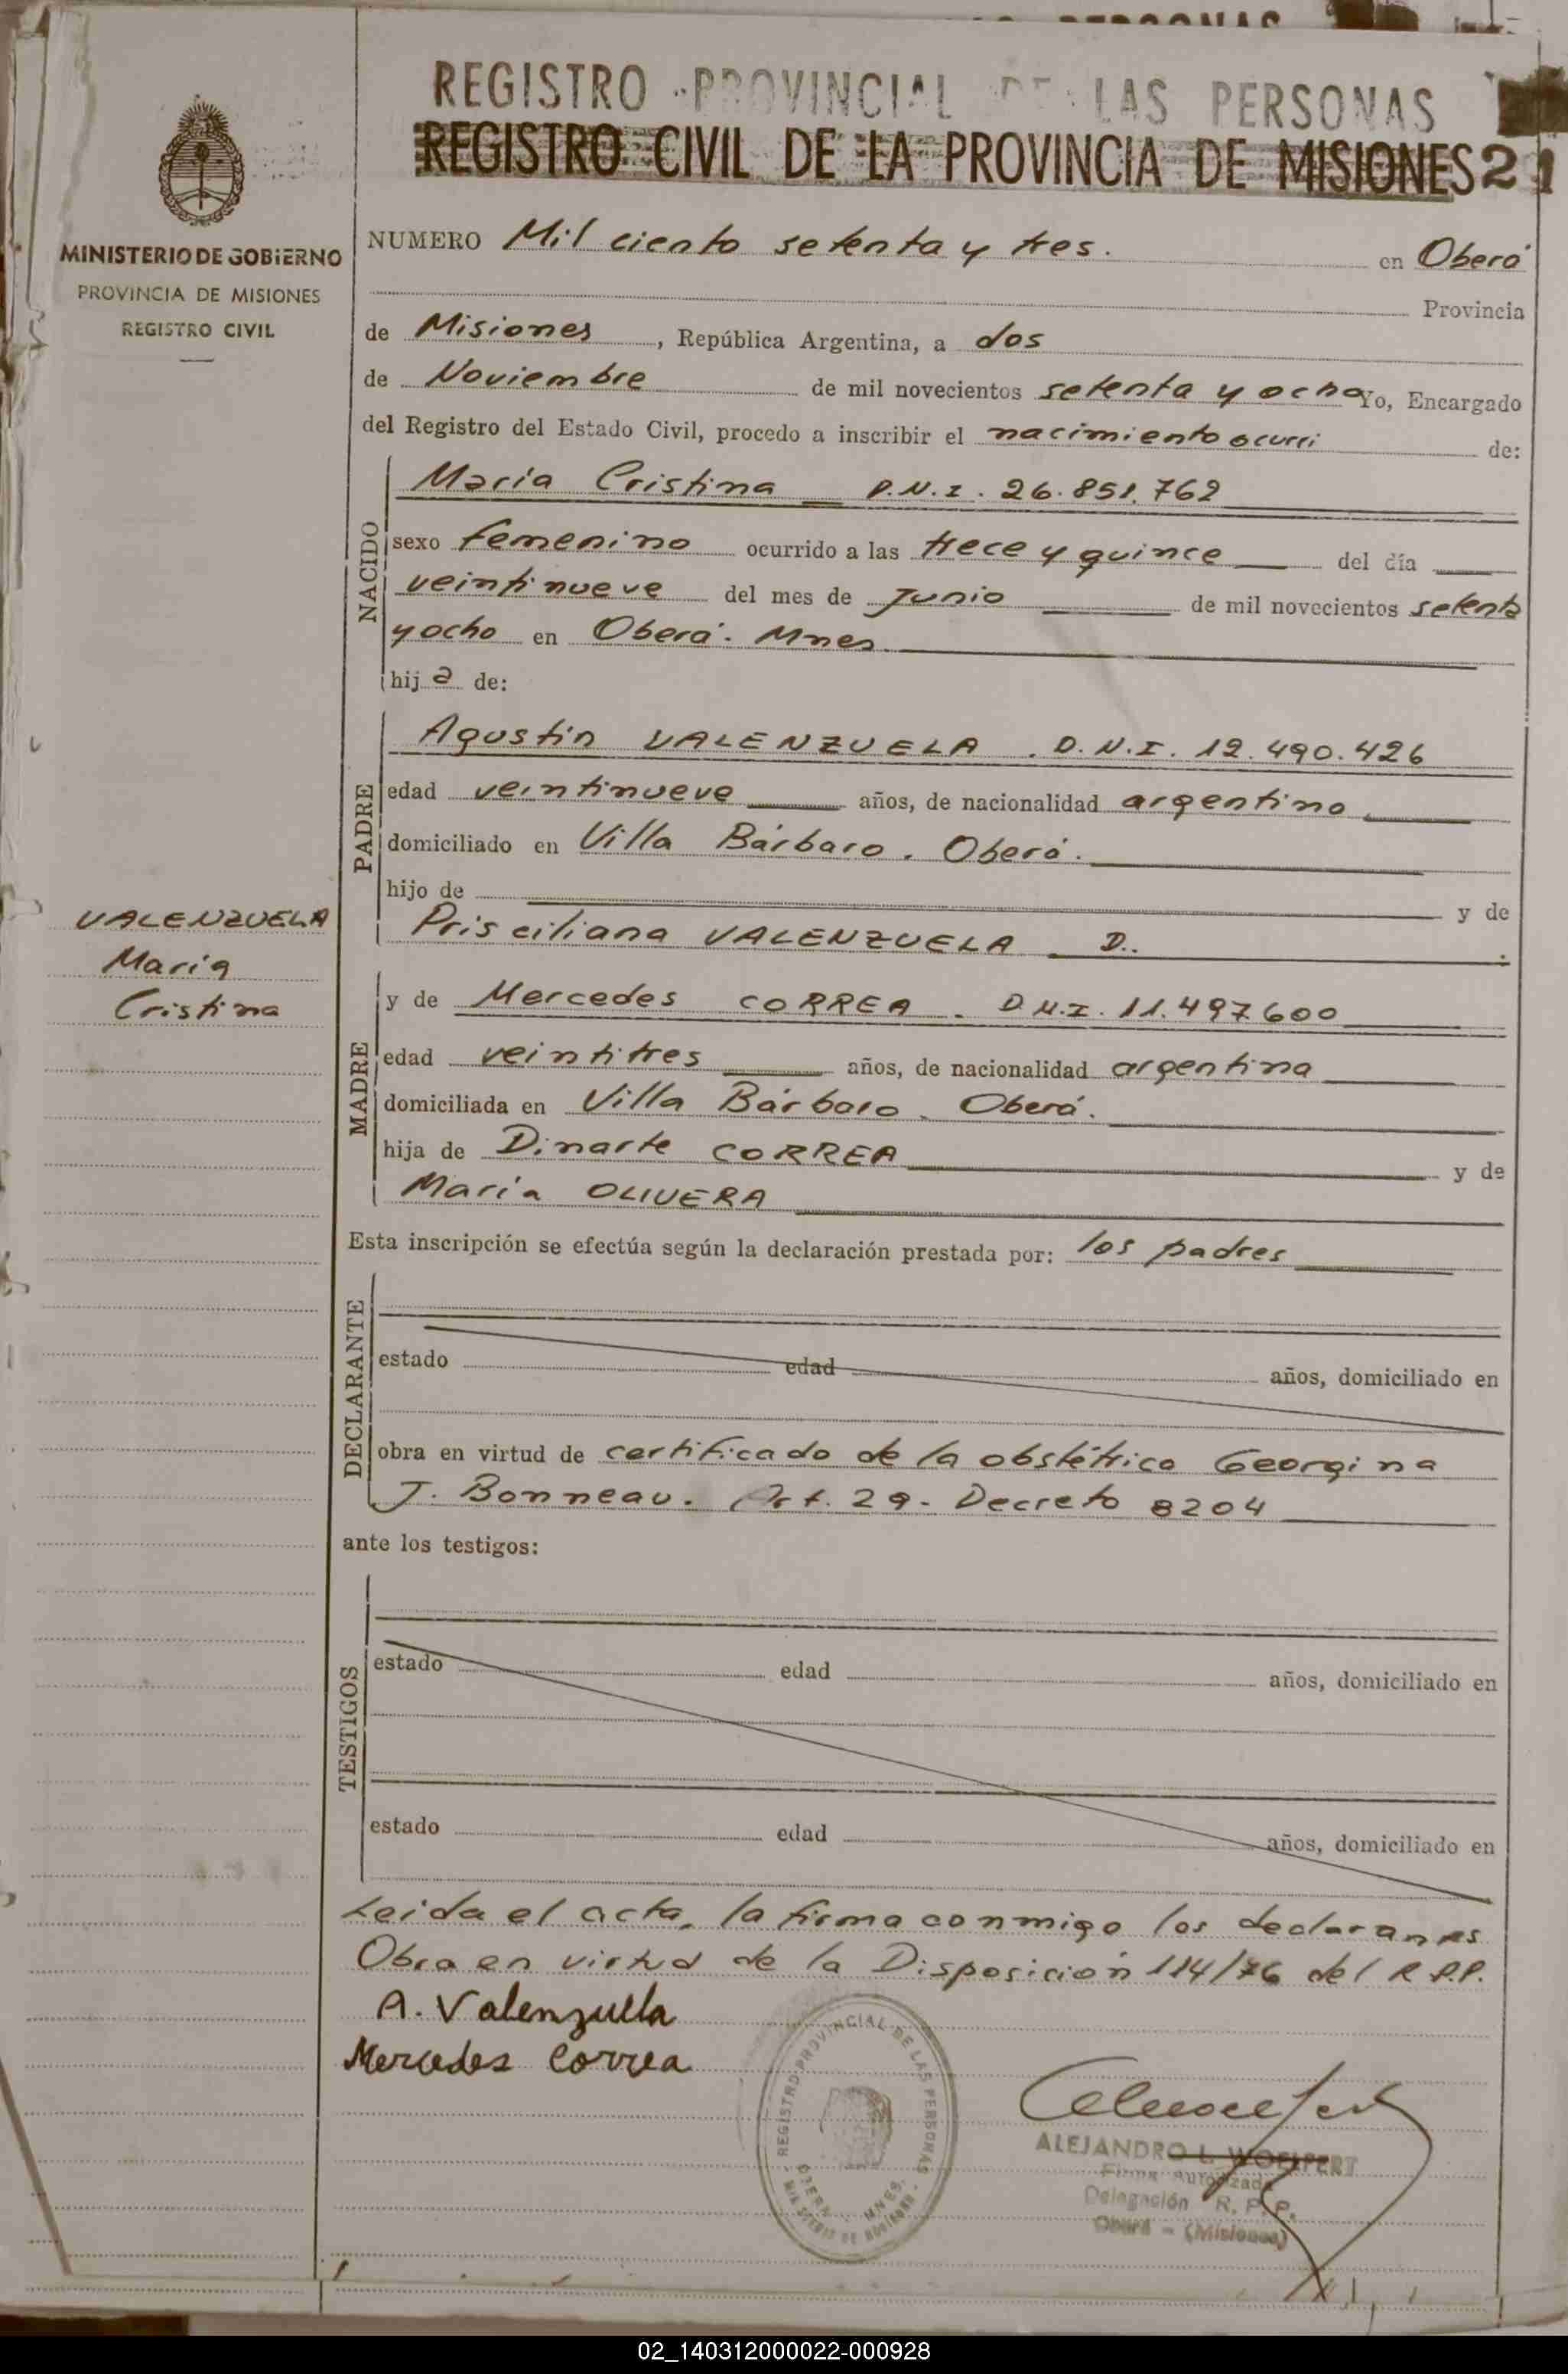 REGISTRO PROVINCIAL DE LAS PERSONAS
REGISTRO CIVIL DE LA PROVINCIA DE MISIONES 21
MINISTERIO DE GOBIERNO
PROVINCIA DE MISIONES
REGISTRO CIVIL
NUMERO Mil ciento setenta y tres. en Oberá
Provincia
de Misiones, República Argentina, a dos
de Noviembre de mil novecientos setenta y ocho Yo, Encargado
del Registro del Estado Civil, procedo a inscribir el nacimiento ocurri de:
NACIDO
María Cristina D.N.I. 26.851.762
sexo femenino ocurrido a las trece y quince del día
veintinueve del mes de Junio de mil novecientos setenta
y ocho en Oberá. Mnes
hija de:
PADRE
Agustín VALENZUELA. D.N.I. 12.490.426
edad veintinueve años, de nacionalidad argentino
domiciliado en Villa Bárbaro. Oberá.
hijo de y de
Prisciliana VALENZUELA D..
VALENZUELA
María
Cristina
MADRE
y de Mercedes CORREA. D.N.I. 11.497.600
edad veintitres años, de nacionalidad argentina
domiciliada en Villa Bárbaro. Oberá.
hija de Dinarte CORREA y de
María OLIVERA
Esta inscripción se efectúa según la declaración prestada por: los padres
DECLARANTE
estado edad años, domiciliado en
obra en virtud de certificado de la obstétrica Georgina
J. Bonneau. Art. 29. Decreto 8204
ante los testigos:
TESTIGOS
estado edad años, domiciliado en
estado edad años, domiciliado en
Leida el acta, la firma conmigo los declarantes
Obra en virtud de la Disposición 114/76 del R.P.P.
A. Valenzuela
Mercedes Correa
REGISTRO PROVINCIAL DE LAS PERSONAS
OBERA - MNES.
MINISTERIO DE GOBIERNO
ALEJANDRO L. WOELFERT
Firma Autorizada
Delegación R. P. P.
Oberá - (Misiones)
02_140312000022-000928